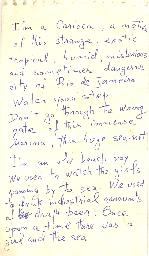 I'm a Carioca, a native
of this strange, exotic
tropical, humid, misterious
and sometimes dangerous
city of Rio de Janeiro
Water
Don't go through to wrong
gate of this immense
marina, this huge sea-
I'm an old beach boy
We used to watch the girls
passing by to sea. We used
to drink industrial amounts
of draft beer. Once
upon a time there was a
girl and the sea